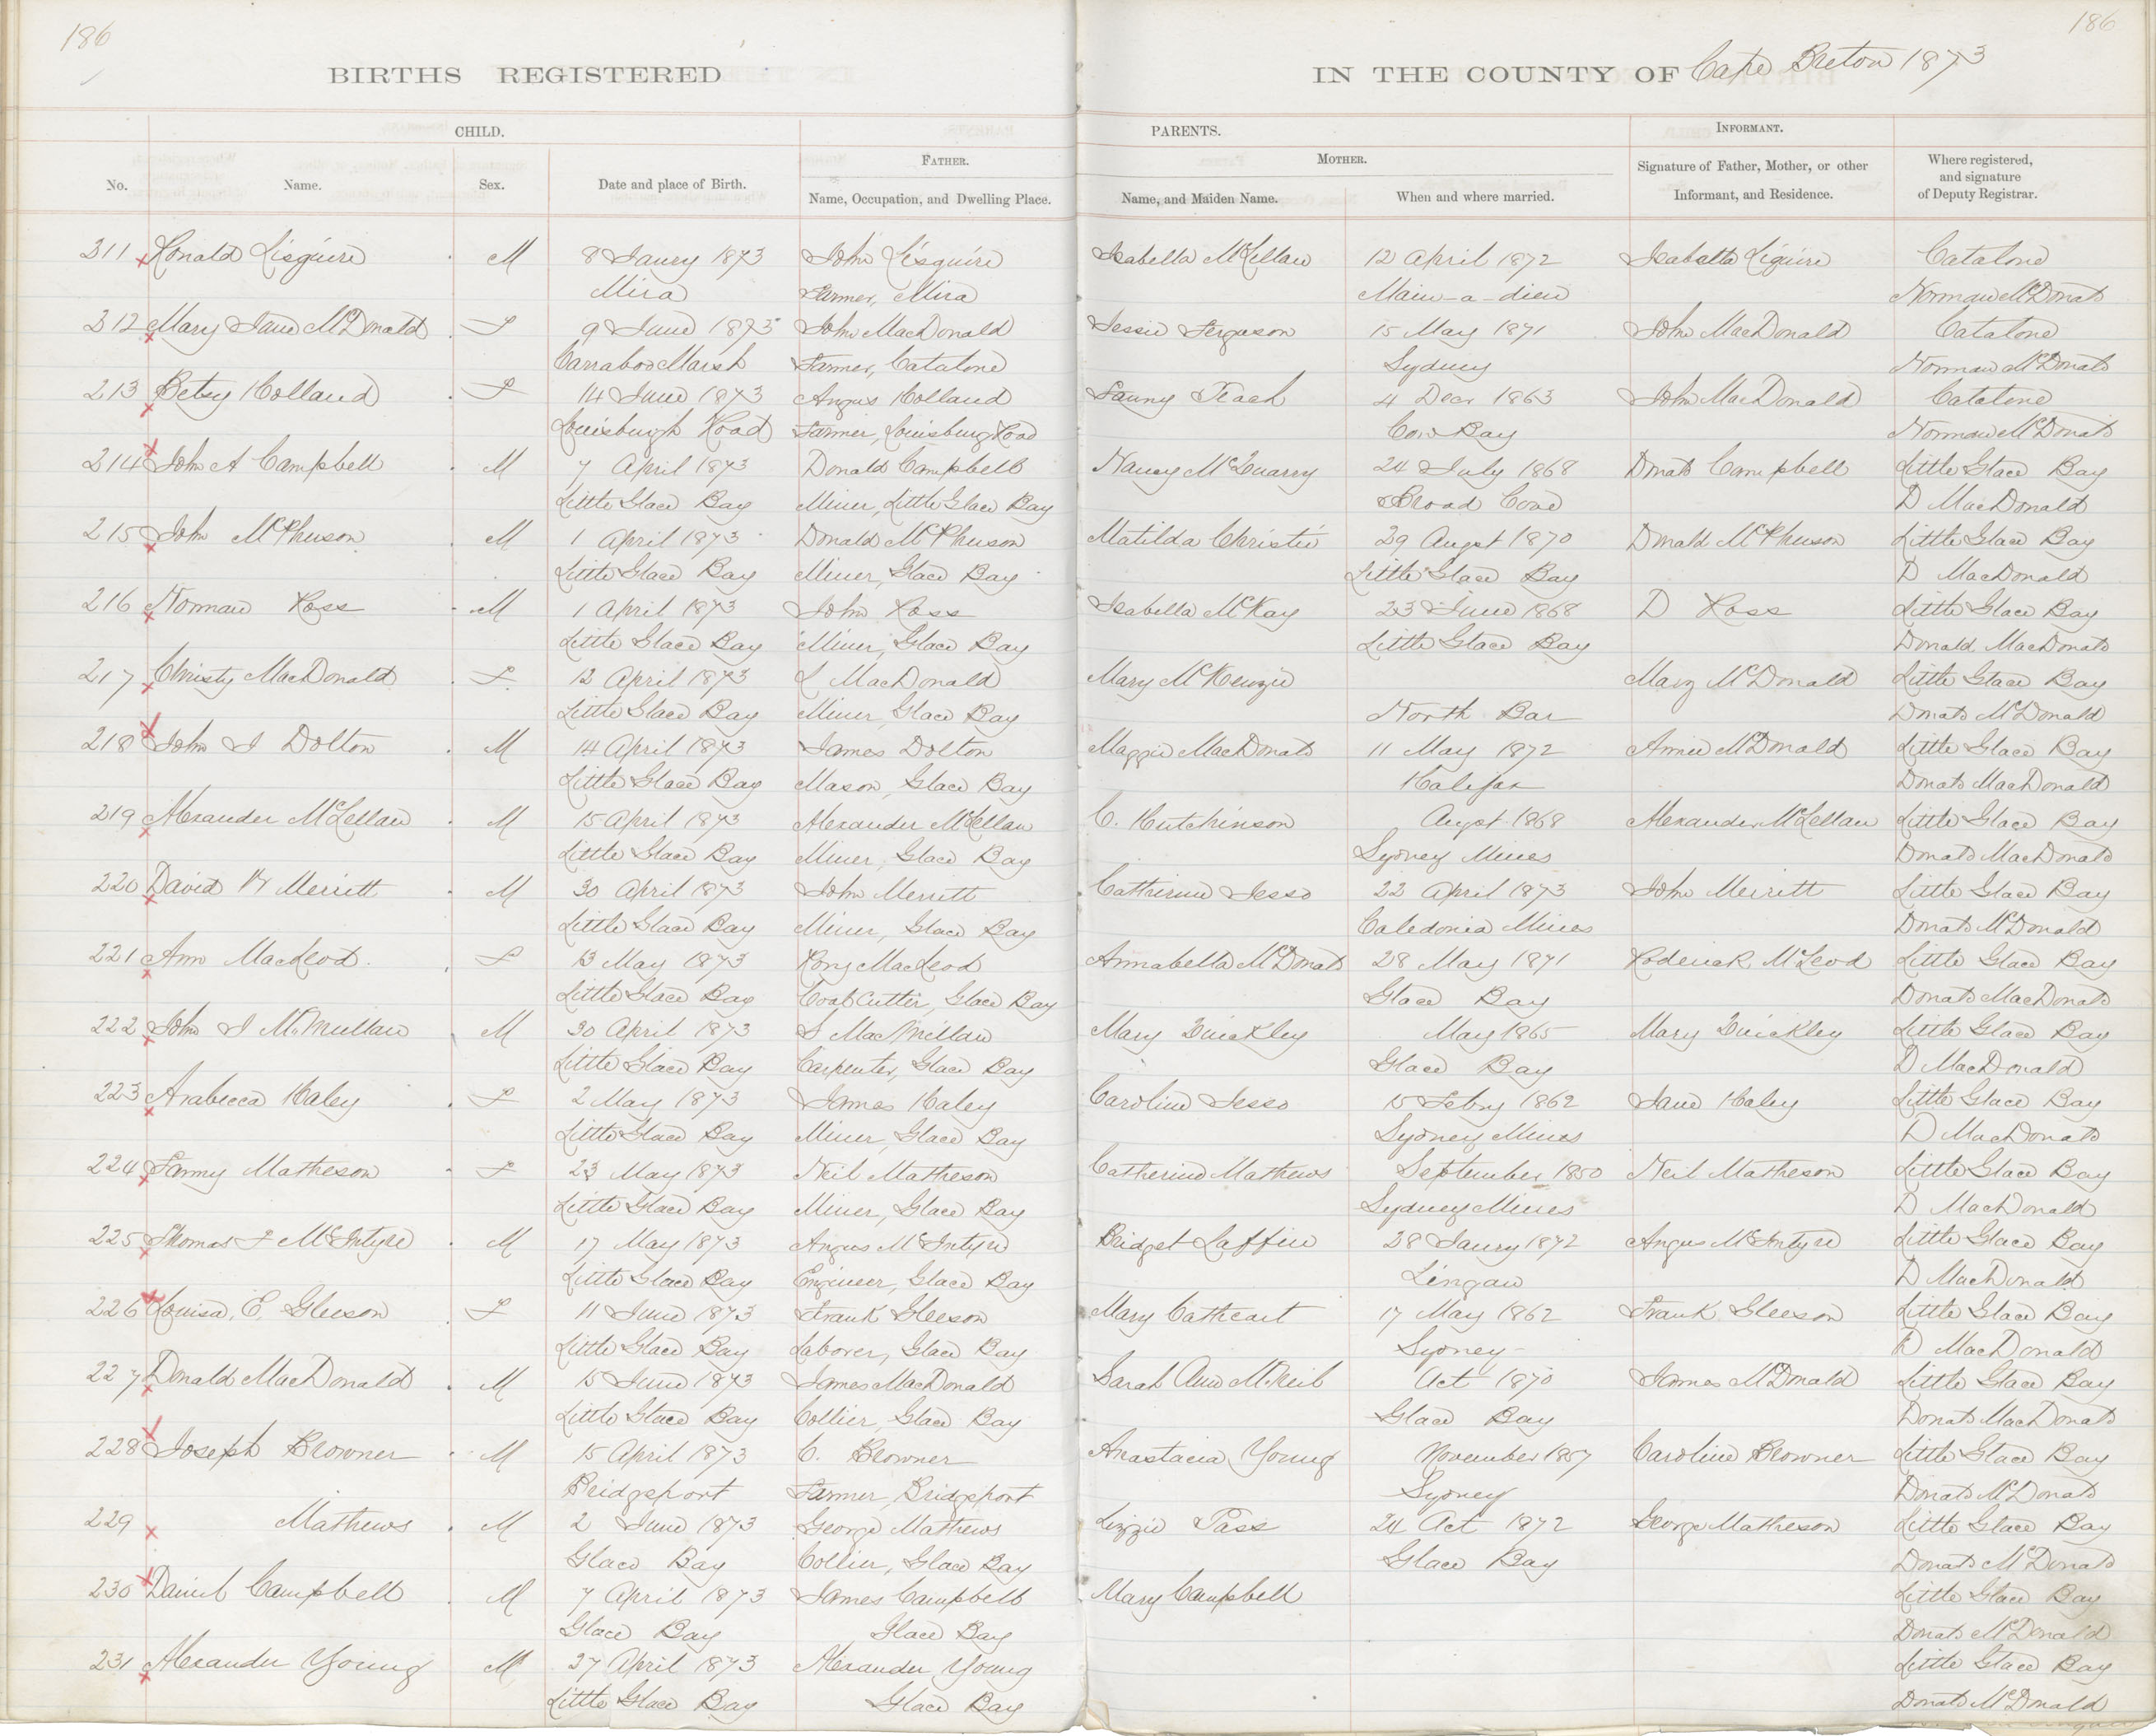 186
186
BIRTHS REGISTERED
IN THE COUNTY OF Cape Breton 1873
CHILD.
PARENTS.
INFORMANT.
FATHER.
MOTHER.
No.
Name.
Sex.
Date and place of Birth.
Name, Occupation, and Dwelling Place.
Name, and Maiden Name.
When and where married.
Signature of Father, Mother, or other Informant, and Residence.
Where registered, and signature of Deputy Registrar.
311 Ronald Lisguire M 8 Jaury 1873 John Lisguire Isabella McLellan 12 April 1872 Isabella Liguire Catalone
Mira Farmer, Mira Main-a-dieu Norman McDonald
312 Mary Jane McDonald F 9 June 1873 John MacDonald Jessie Ferguson 15 May 1871 John MacDonald Catalone
Marsh Farmer, Catalone Sydney Norman McDonald
213 Betsy Holland F 14 June 1873 Angus Holland Fanny Peach 4 Decr 1863 John MacDonald Catalone
Louisburgh Road Farmer, Louisburg Road Cow Bay Norman McDonald
214 John A Campbell M 7 April 1873 Donald Campbell Nancy McQuarry 24 July 1868 Donald Campbell Little Glace Bay
Little Glace Bay Miner, Little Glace Bay Broad Cove D MacDonald
215 John McPherson M 1 April 1873 Donald McPherson Matilda Christie 29 Augst 1870 Donald McPherson Little Glace Bay
Little Glace Bay Miner, Glace Bay Little Glace Bay D MacDonald
216 Norman Ross M 1 April 1873 John Ross Isabella McKay 23 June 1868 D Ross Little Glace Bay
Little Glace Bay Miner, Glace Bay Little Glace Bay Donald MacDonald
217 Christy MacDonald F 12 April 1873 L MacDonald Mary McKenzie Mary McDonald Little Glace Bay
Little Glace Bay Miner, Glace Bay North Bar Donald McDonald
218 John J Dolton M 14 April 1873 James Dolton Maggie MacDonald 11 May 1872 Annie McDonald Little Glace Bay
Little Glace Bay Mason, Glace Bay Halifax Donald MacDonald
219 Alexander McLellan M 15 April 1873 Alexander McLellan C. Hutchinson Augst 1868 Alexander McLellan Little Glace Bay
Little Glace Bay Miner, Glace Bay Sydney Mines Donald MacDonald
220 David W Merritt M 30 April 1873 John Merritt Catherine Jesso 22 April 1873 John Merritt Little Glace Bay
Little Glace Bay Miner, Glace Bay Caledonia Mines Donald McDonald
221 Ann MacLeod F 13 May 1873 Rory MacLeod Annabella McDonald 28 May 1871 Roderick McLeod Little Glace Bay
Little Glace Bay Coal Cutter, Glace Bay Glace Bay Donald MacDonald
222 John J McMullan M 30 April 1873 J MacMillan Mary Quickley May 1865 Mary Quickley Little Glace Bay
Little Glace Bay Carpenter, Glace Bay Glace Bay D MacDonald
223 Arabecca Haley F 2 May 1873 James Haley Caroline Jesso 15 Febry 1862 Jane Haley Little Glace Bay
Little Glace Bay Miner, Glace Bay Sydney Mines D MacDonald
224 Fanny Matheson F 23 May 1873 Neil Matheson Catherine Mathews September 1850 Neil Matheson Little Glace Bay
Little Glace Bay Miner, Glace Bay Sydney Mines D MacDonald
225 Thomas F McIntyre M 17 May 1873 Angus McIntyre Bridget Laffin 28 Jaury 1872 Angus McIntyre Little Glace Bay
Little Glace Bay Engineer, Glace Bay Lingan D MacDonald
226 Louisa, E, Gleeson F 11 June 1873 Frank Gleeson Mary Cathcart 17 May 1862 Frank Gleeson Little Glace Bay
Little Glace Bay Laborer, Glace Bay Sydney D MacDonald
227 Donald MacDonald M 15 June 1873 James MacDonald Sarah Ann McNeil Oct 1870 James McDonald Little Glace Bay
Little Glace Bay Collier, Glace Bay Glace Bay Donald MacDonald
228 Joseph Browner M 15 April 1873 C. Browner Anastacia Young November 1857 Caroline Browner Little Glace Bay
Bridgeport Farmer, Bridgeport Sydney Donald McDonald
229 Mathews M 2 June 1873 George Mathews Lizzie Pass 24 Oct 1872 George Matheson Little Glace Bay
Glace Bay Collier, Glace Bay Glace Bay Donald McDonald
230 Daniel Campbell M 7 April 1873 James Campbell Mary Campbell Little Glace Bay
Glace Bay Glace Bay Donald McDonald
231 Alexander Young M 27 April 1873 Alexander Young Little Glace Bay
Little Glace Bay Glace Bay Donald McDonald